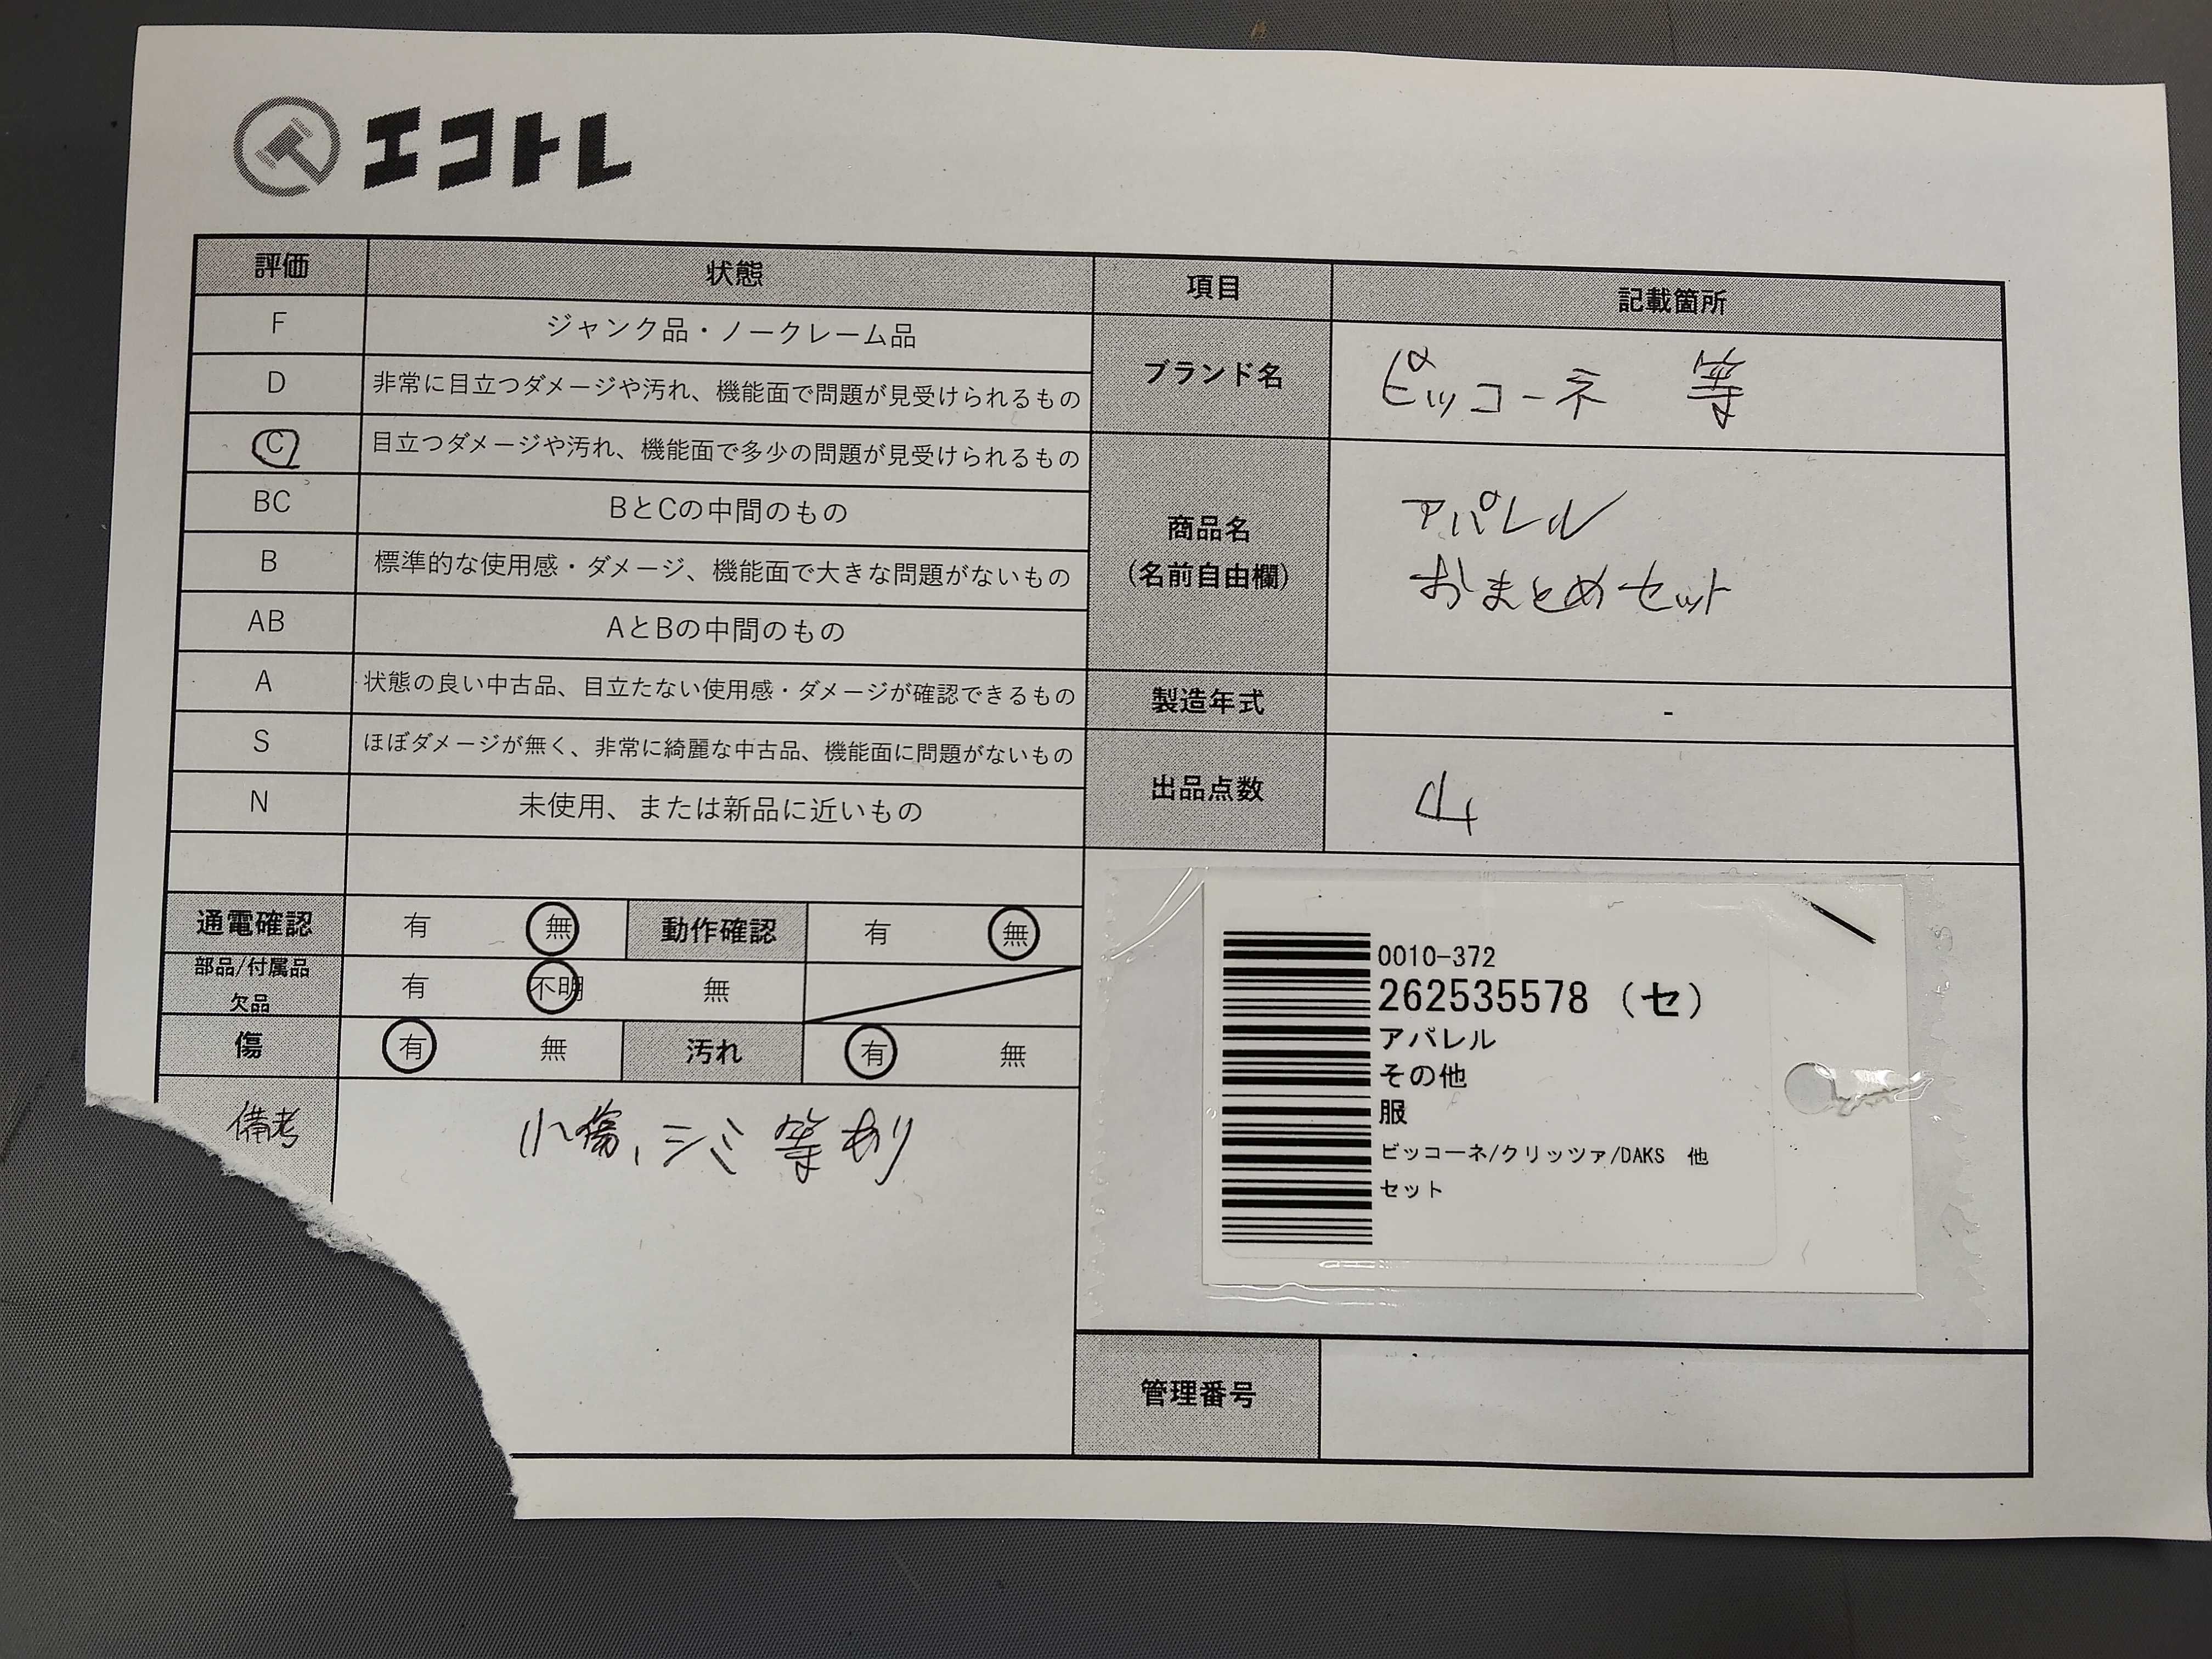 エコトレ
評価 状態 項目 記載箇所
F ジャンク品・ノークレーム品
D 非常に目立つダメージや汚れ、機能面で問題が見受けられるもの
C 目立つダメージや汚れ、機能面で多少の問題が見受けられるもの
BC BとCの中間のもの
B 標準的な使用感・ダメージ、機能面で大きな問題がないもの
AB AとBの中間のもの
A 状態の良い中古品、目立たない使用感・ダメージが確認できるもの
S ほぼダメージが無く、非常に綺麗な中古品、機能面に問題がないもの
N 未使用、または新品に近いもの
ブランド名 ピッコーネ 等
商品名
(名前自由欄)
アパレル
おまとめセット
製造年式 -
出品点数 4
通電確認 有 無 動作確認 有 無
部品/付属品
欠品
有 不明 無
傷 有 無 汚れ 有 無
備考 小傷、シミ等あり
0010-372
262535578 (セ)
アパレル
その他
服
ピッコーネ/クリッツァ/DAKS 他
セット
管理番号